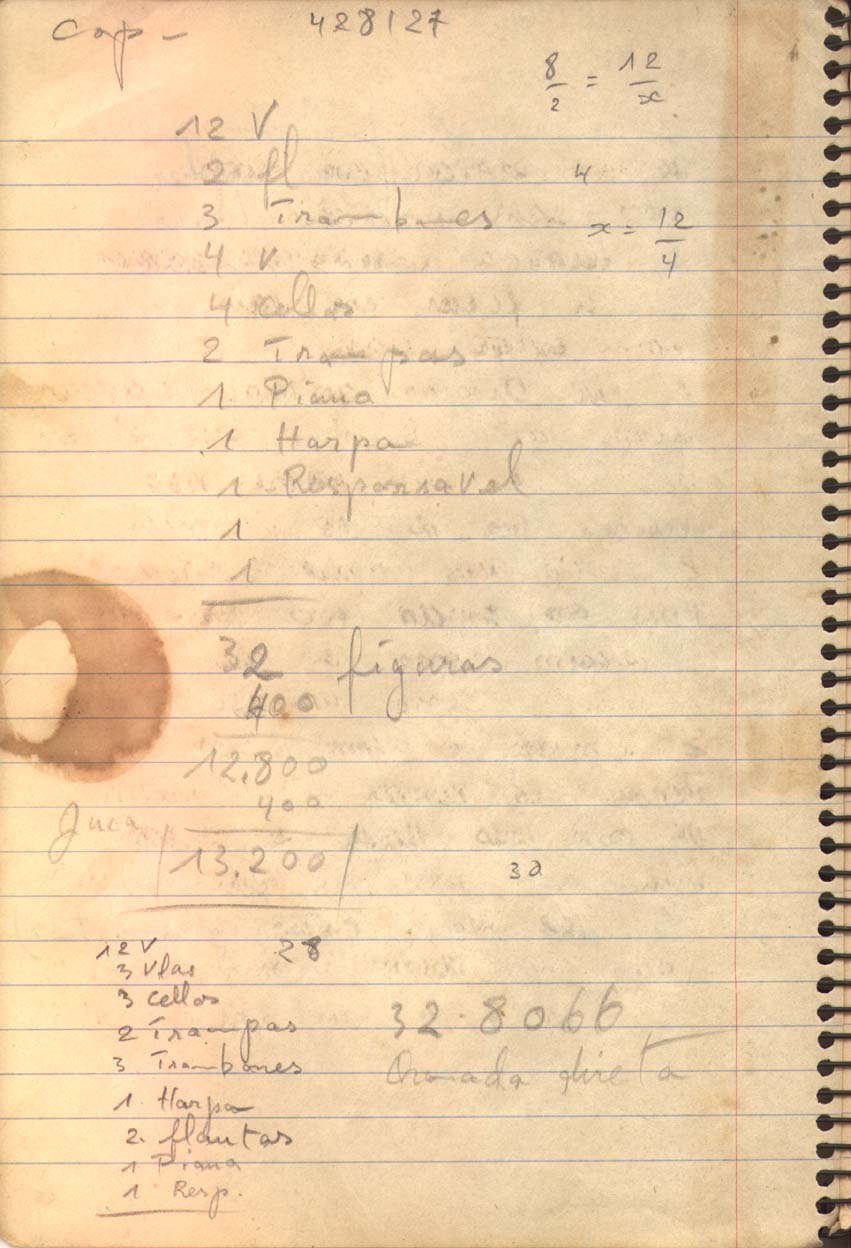 Cap - 428127
8/2 = 12/x
12 V
2 fl
3 Trambones 4
x = 12/4
4 v.
4 cellos
2 Trampas
1 Piano
1 Harpa
1 Responsavel
1
1
32 figuras
400
12.800
400
Juca 13.200
32
12 V 28
3 Vlas
3 cellos
2 Trampas
32-8066
3 Trambones
direta
1. Harpa
2. flautas
1 Piano
1 Resp.